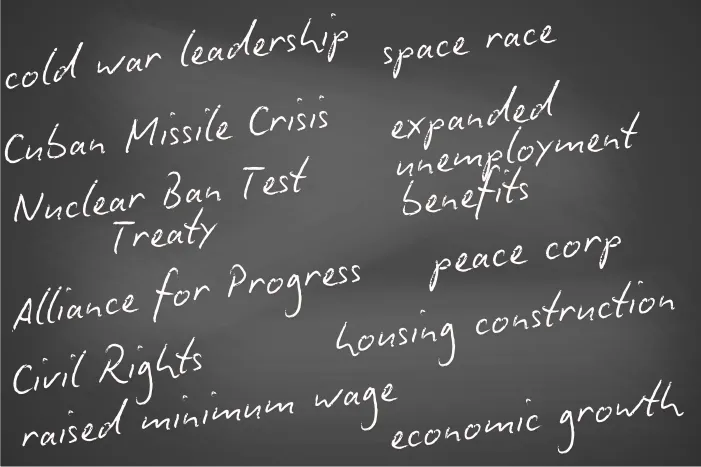 cold war leadership
Cuban Missile Crisis
Nuclear Ban Test
Treaty
Alliance for Progress
Civil Rights
raised minimum wage
space race
expanded
unemployment
benefits
peace corp
housing construction
economic growth